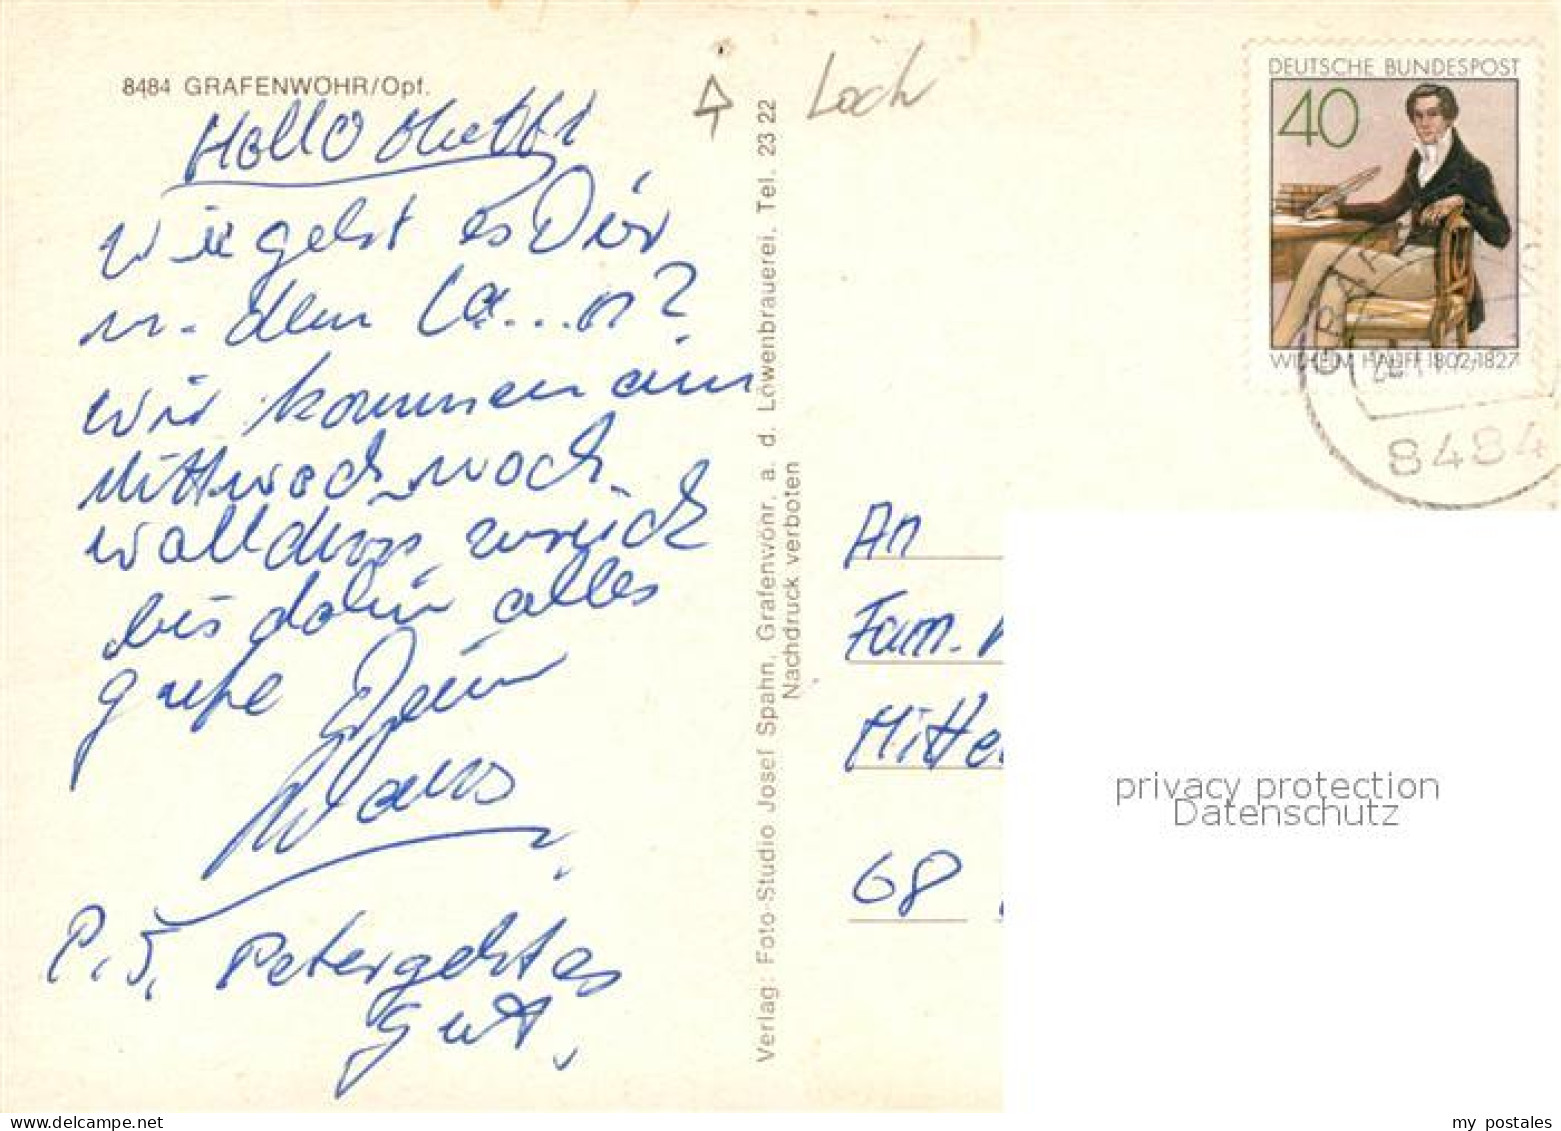 8484 GRAFENWÖHR/Opf.
Hallo
wie geht es Dir
u. dem La...n?
wir kommen am
Mittwoch nach
Walldorf zurück
bis dahin alles
gute Dein
Klaus
P.S. Peter geht es
gut.
Verlag: Foto-Studio Josef Spahn, Grafenwöhr, a. d. Löwenbrauerei, Tel. 23 22
Nachdruck verboten
Loch
DEUTSCHE BUNDESPOST
40
WILHELM HAUFF 1802-1827
8484
An
Fam.
Mitte
68
privacy protection
Datenschutz
my postales